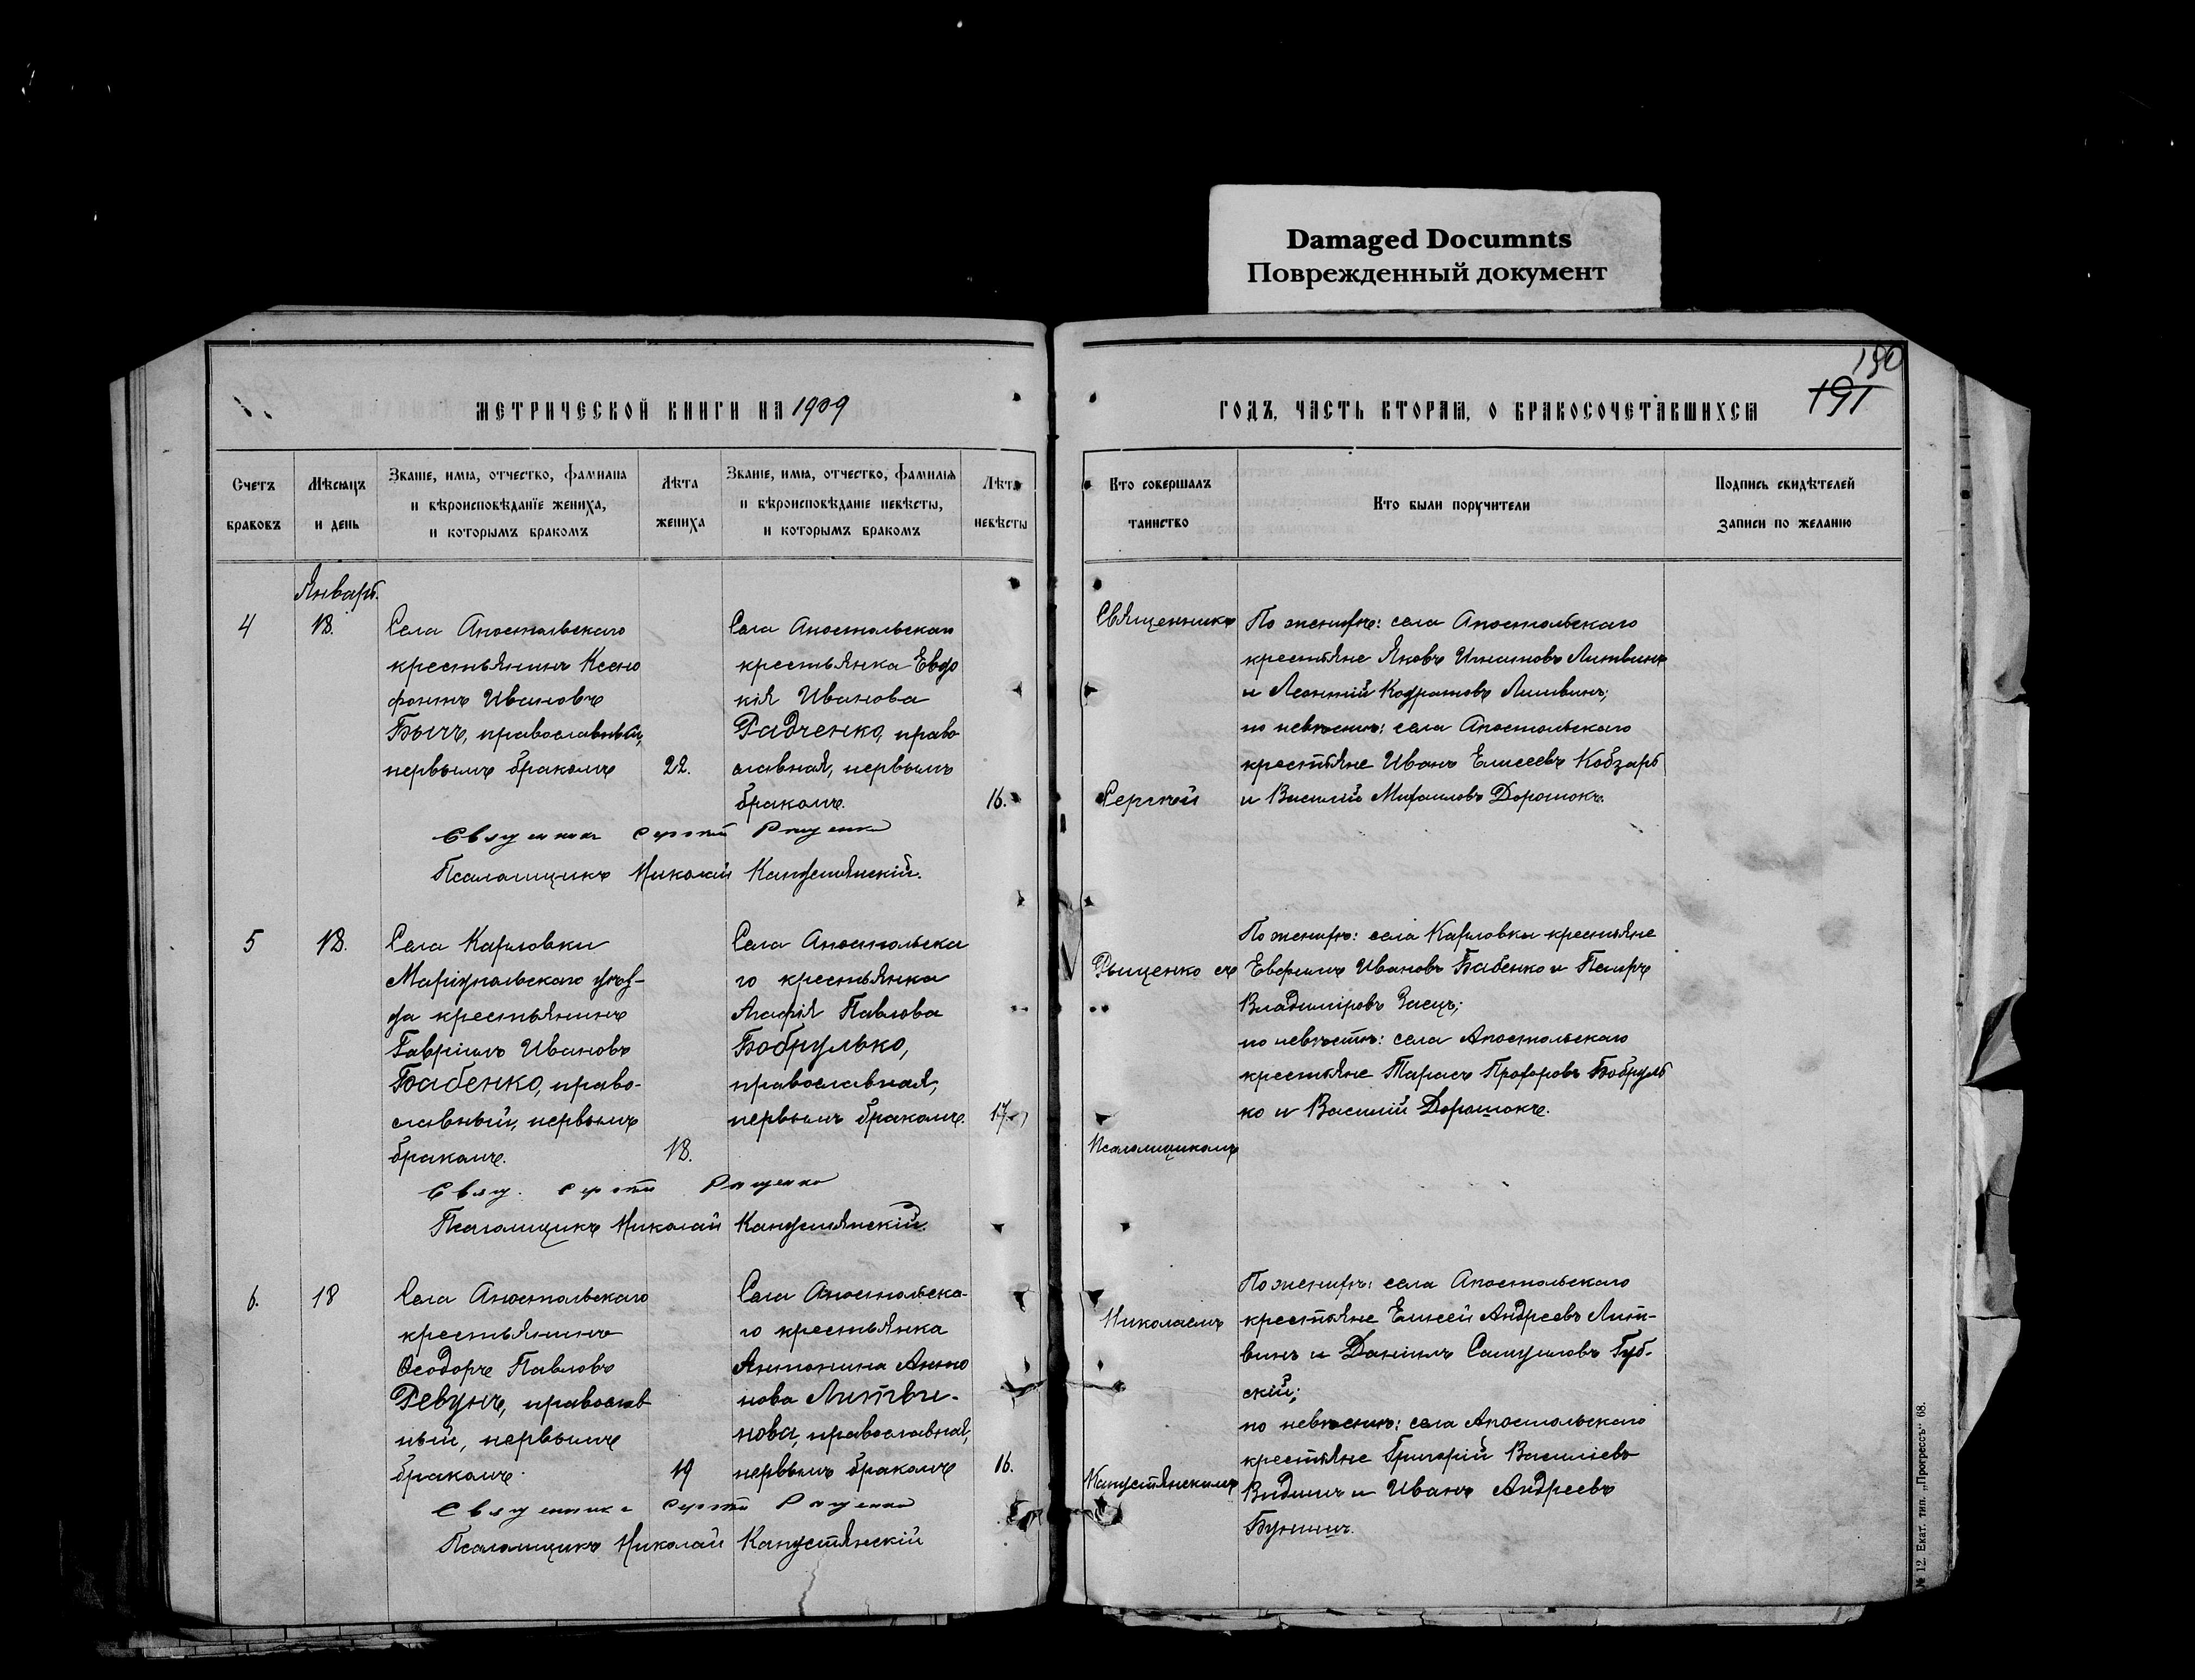 Damaged Documnts
Поврежденный документ
190
191
МЕТРИЧЕСКОЙ КНИГИ НА 1909
ГОДЪ, ЧАСТЬ ВТОРАЯ, О БРАКОСОЧЕТАВШИХСЯ
Счетъ браковъ
Мѣсяцъ и день
Званіе, имя, отчество, фамилія и вѣроисповѣданіе жениха, и которымъ бракомъ
Лѣта жениха
Званіе, имя, отчество, фамилія и вѣроисповѣданіе невѣсты, и которымъ бракомъ
Лѣта невѣсты
Кто совершалъ таинство
Кто были поручители
Подпись свидѣтелей записи по желанію
Январь.
4
18.
Села Апостольскаго
крестьянинъ Ксено
фонтъ Ивановъ
Бычъ, православный,
первымъ бракомъ
22.
Села Апостольскаго
крестьянка Евдо
кія Иванова
Радченко, право
славная, первымъ
бракомъ.
16.
Священникъ Сергій
Псаломщикъ Николай Капустянскій.
Священникъ
Сергій
По женихѣ: села Апостольскаго
крестьяне Яковъ Игнатовъ Литвинъ
и Леонтій Кодратовъ Литвинъ;
по невѣстѣ: села Апостольскаго
крестьяне Иванъ Елисеевъ Кобзарь
и Василій Михаиловъ Дорошокъ.
5
18.
Села Карловки
Маріупольскаго уѣз-
да крестьянинъ
Гавріилъ Ивановъ
Бабенко, право-
славный, первымъ
бракомъ.
18.
Села Апостольска
го крестьянка
Агафія Павлова
Бобрулько,
православная,
первымъ бракомъ.
17.
Свящ. Сергій
Псаломщикъ Николай Капустянскій.
съ
Псаломщикомъ
По женихѣ: села Карловки крестьяне
Ефимъ Ивановъ Бабенко и Петръ
Владиміровъ Заецъ;
по невѣстѣ: села Апостольскаго
крестьяне Тарасъ Прохоровъ Бобруль
ко и Василій Дорошокъ.
6.
18
Села Апостольскаго
крестьянинъ
Ѳеодоръ Павловъ
Ревунъ, православ
ный, первымъ
бракомъ.
19
Села Апостольска-
го крестьянка
Антонина Анто
нова Литви-
нова, православная,
первымъ бракомъ
16.
Священникъ Сергій
Псаломщикъ Николай Капустянскій
Николаемъ
Капустянскимъ
По женихѣ: села Апостольскаго
крестьяне Елисей Андреевъ Лит-
винъ и Даніилъ Самуиловъ Губ-
скій;
по невѣстѣ: села Апостольскаго
крестьяне Григорій Василіевъ
и Иванъ Андреевъ
№ 12. Екат. тип. „Прогрессъ“ 68.